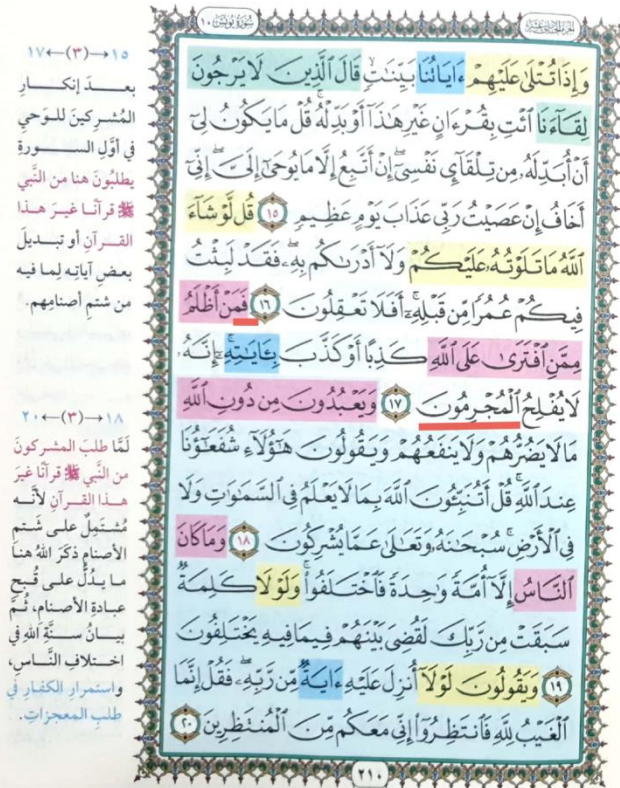 سُورَةُ يُونُسَ ١٠
وَإِذَا تُتْلَىٰ عَلَيْهِمْ ءَايَاتُنَا بَيِّنَٰتٖ قَالَ ٱلَّذِينَ لَا يَرْجُونَ
لِقَآءَنَا ٱئْتِ بِقُرْءَانٍ غَيْرِ هَٰذَآ أَوْ بَدِّلْهُ ۚ قُلْ مَا يَكُونُ لِىٓ
أَنْ أُبَدِّلَهُۥ مِن تِلْقَآئِ نَفْسِىٓ ۖ إِنْ أَتَّبِعُ إِلَّا مَا يُوحَىٰٓ إِلَىَّ ۖ إِنِّىٓ
أَخَافُ إِنْ عَصَيْتُ رَبِّى عَذَابَ يَوْمٍ عَظِيمٖ ١٥ قُل لَّوْ شَآءَ
ٱللَّهُ مَا تَلَوْتُهُۥ عَلَيْكُمْ وَلَآ أَدْرَىٰكُم بِهِۦ ۖ فَقَدْ لَبِثْتُ
فِيكُمْ عُمُرًا مِّن قَبْلِهِۦٓ ۚ أَفَلَا تَعْقِلُونَ ١٦ فَمَنْ أَظْلَمُ
مِمَّنِ ٱفْتَرَىٰ عَلَى ٱللَّهِ كَذِبًا أَوْ كَذَّبَ بِـَٔايَٰتِهِۦٓ ۚ إِنَّهُۥ
لَا يُفْلِحُ ٱلْمُجْرِمُونَ ١٧ وَيَعْبُدُونَ مِن دُونِ ٱللَّهِ
مَا لَا يَضُرُّهُمْ وَلَا يَنفَعُهُمْ وَيَقُولُونَ هَٰٓؤُلَآءِ شُفَعَٰٓؤُنَا
عِندَ ٱللَّهِ ۚ قُلْ أَتُنَبِّـُٔونَ ٱللَّهَ بِمَا لَا يَعْلَمُ فِى ٱلسَّمَٰوَٰتِ وَلَا
فِى ٱلْأَرْضِ ۚ سُبْحَٰنَهُۥ وَتَعَٰلَىٰ عَمَّا يُشْرِكُونَ ١٨ وَمَا كَانَ
ٱلنَّاسُ إِلَّآ أُمَّةً وَٰحِدَةً فَٱخْتَلَفُوا۟ ۚ وَلَوْلَا كَلِمَةٌ
سَبَقَتْ مِن رَّبِّكَ لَقُضِىَ بَيْنَهُمْ فِيمَا فِيهِ يَخْتَلِفُونَ
١٩ وَيَقُولُونَ لَوْلَآ أُنزِلَ عَلَيْهِ ءَايَةٌ مِّن رَّبِّهِۦ ۖ فَقُلْ إِنَّمَا
ٱلْغَيْبُ لِلَّهِ فَٱنتَظِرُوٓا۟ إِنِّى مَعَكُم مِّنَ ٱلْمُنتَظِرِينَ ٢٠
٢١٠
١٥←(٣)→١٧
بعدَ إنكارِ
المُشركينَ للوَحيِ
في أوَّلِ السورةِ
يطلبُونَ هنا من النَّبي
ﷺ قرآنًا غيرَ هذا
القرآنِ أو تبديلَ
بعضِ آياتِه لِما فيه
من شتمِ أصنامِهم.
١٨←(٣)→٢٠
لَمَّا طلبَ المشركونَ
من النَّبي ﷺ قرآنًا غيرَ
هذا القرآنِ لأنَّه
مُشتَمِلٌ على شَتمِ
الأصنامِ ذكَرَ اللهُ هنا
ما يدُلُّ على قُبحِ
عبادةِ الأصنامِ، ثُمَّ
بيانُ سنَّةِ اللهِ في
اختلافِ النَّاسِ،
واستمرار الكفارِ في
طلبِ المعجزاتِ.